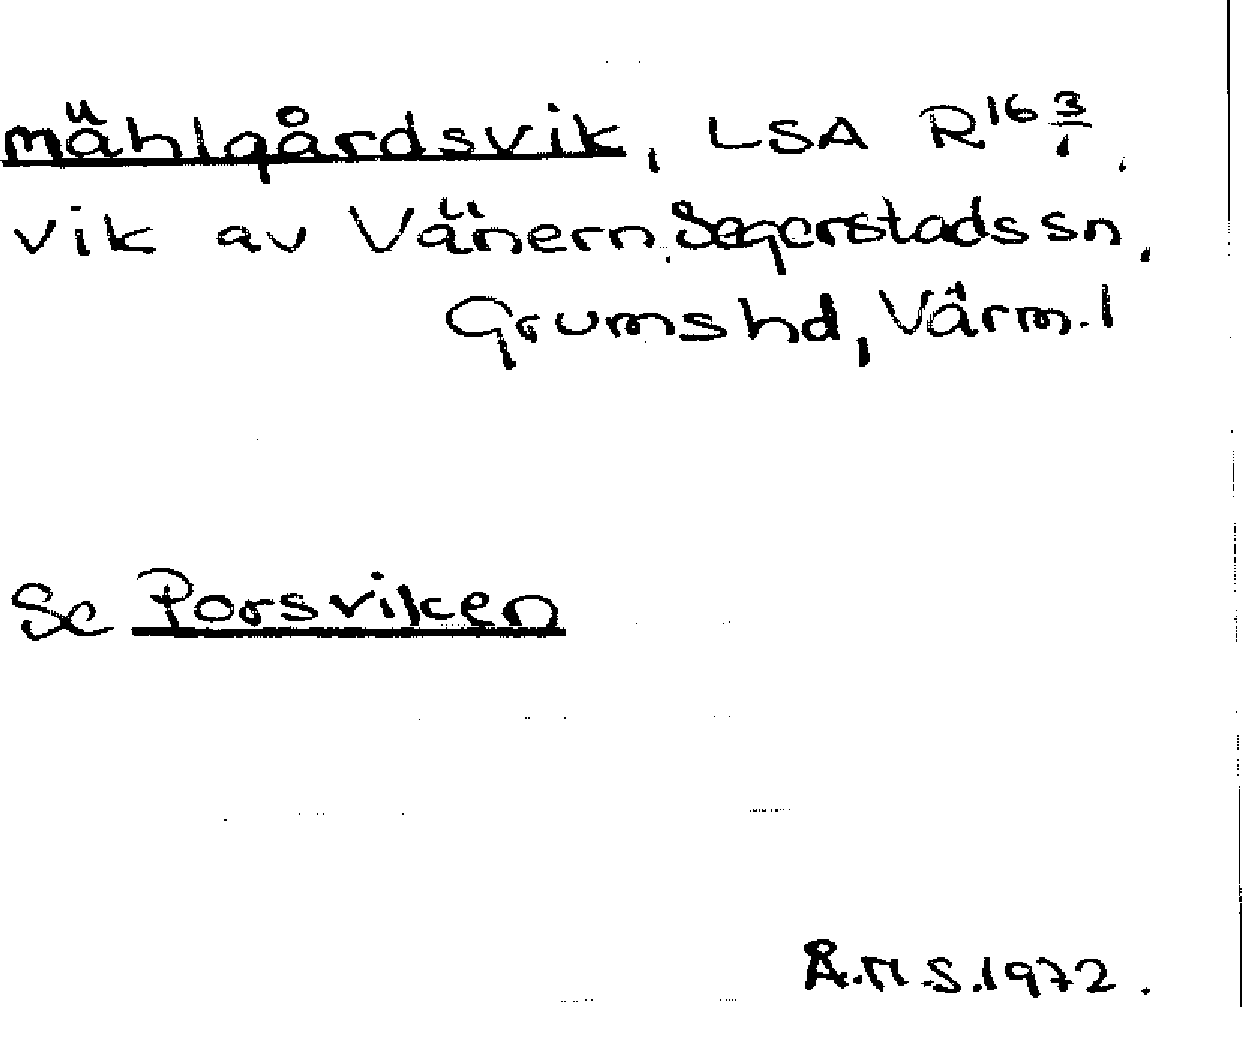 mählgårdsvik, LSA R16 3/1.
vik av Vänern, Segerstads sn,
Grums hd, Värml.
Se Porsviken
Å.H.S. 1972.